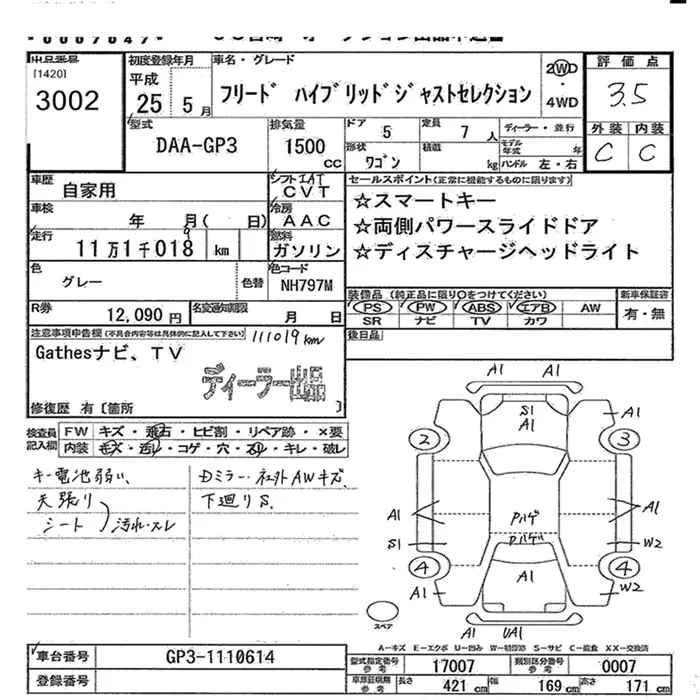 出品番号
[1420]
3002
初度登録年月
平成
25 5 月
車名・グレード
フリード ハイブリッドジャストセレクション
2WD
・
4WD
評価点
3.5
外装 内装
C C
型式
DAA-GP3
排気量
1500
CC
ドア
5
定員
7 人
ディーラー・並行
形状
ワゴン
積載
kg
モデル
年式
年
ハンドル 左・右
車歴
自家用
シフト IAT
CVT
車検
年 月( 日)
冷房
AAC
走行
11万1千018 km
9
燃料
ガソリン
色
グレー
色替
色コード
NH797M
R券
12,090 円
名変通知期限
月 日
セールスポイント(正常に機能するものに限ります)
☆スマートキー
☆両側パワースライドドア
☆ディスチャージヘッドライト
装備品(純正品に限り○をつけてください)
PS PW ABS エアB AW
SR ナビ TV カワ
新車保証書
有・無
後日品
注意事項申告欄(不具合内容等は具体的に記入して下さい)
111019km
Gathesナビ、TV
ディーラー出品
修復歴 有〔箇所 〕
検査員
記入欄
FW キズ・飛石・ヒビ割・リペア跡・×要
内装 キズ・汚レ・コゲ・穴・スレ・キレ・破レ
キー電池弱い、
天張り
シート
汚れ・スレ
Dミラー・社外AWキズ、
下廻りS.
A1 A1
S1
A1
A1
2 3
A1 A1
Pハゲ
Pハゲ
S1 W2
4 4
A1
A1 W2
A1 UA1
スペア
A-キズ E-エクボ U-凹み W-補修跡 S-サビ C-腐食 XX-交換済
車台番号
GP3-1110614
登録番号
型式指定番号
参考
17007
類別区分番号
参考
0007
車両諸元
参考
長さ
421 cm
幅
169 cm
高さ
171 cm